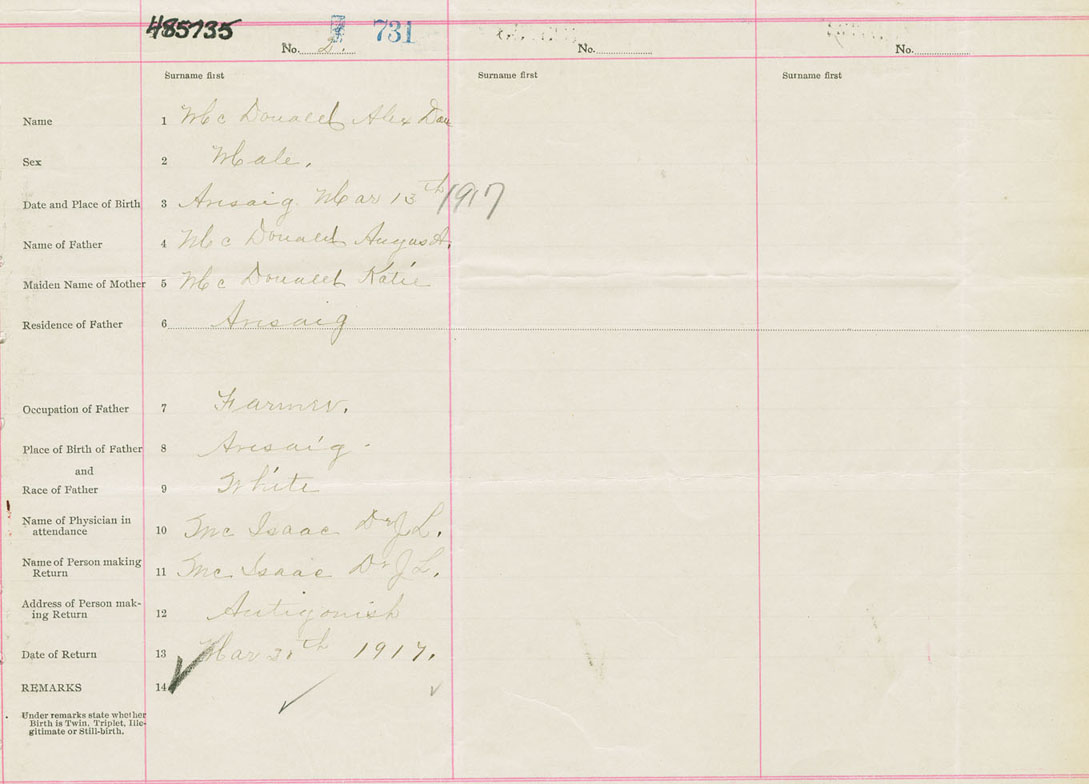 485735
No. 2. 731 No. No.
Surname first Surname first Surname first
Name 1 McDonald Alex Dan
Sex 2 Male.
Date and Place of Birth 3 Arisaig Mar 13th 1917
Name of Father 4 McDonald Angus A.
Maiden Name of Mother 5 McDonald Katie
Residence of Father 6 Arisaig
Occupation of Father 7 Farmer.
Place of Birth of Father 8 Arisaig.
and
Race of Father 9 White
Name of Physician in
attendance 10 McIsaac Dr J L.
Name of Person making
Return 11 McIsaac Dr J L.
Address of Person mak-
ing Return 12 Antigonish
Date of Return 13 Mar th 1917.
REMARKS 14
Under remarks state whether
Birth is Twin, Triplet, Ille-
gitimate or Still-birth.